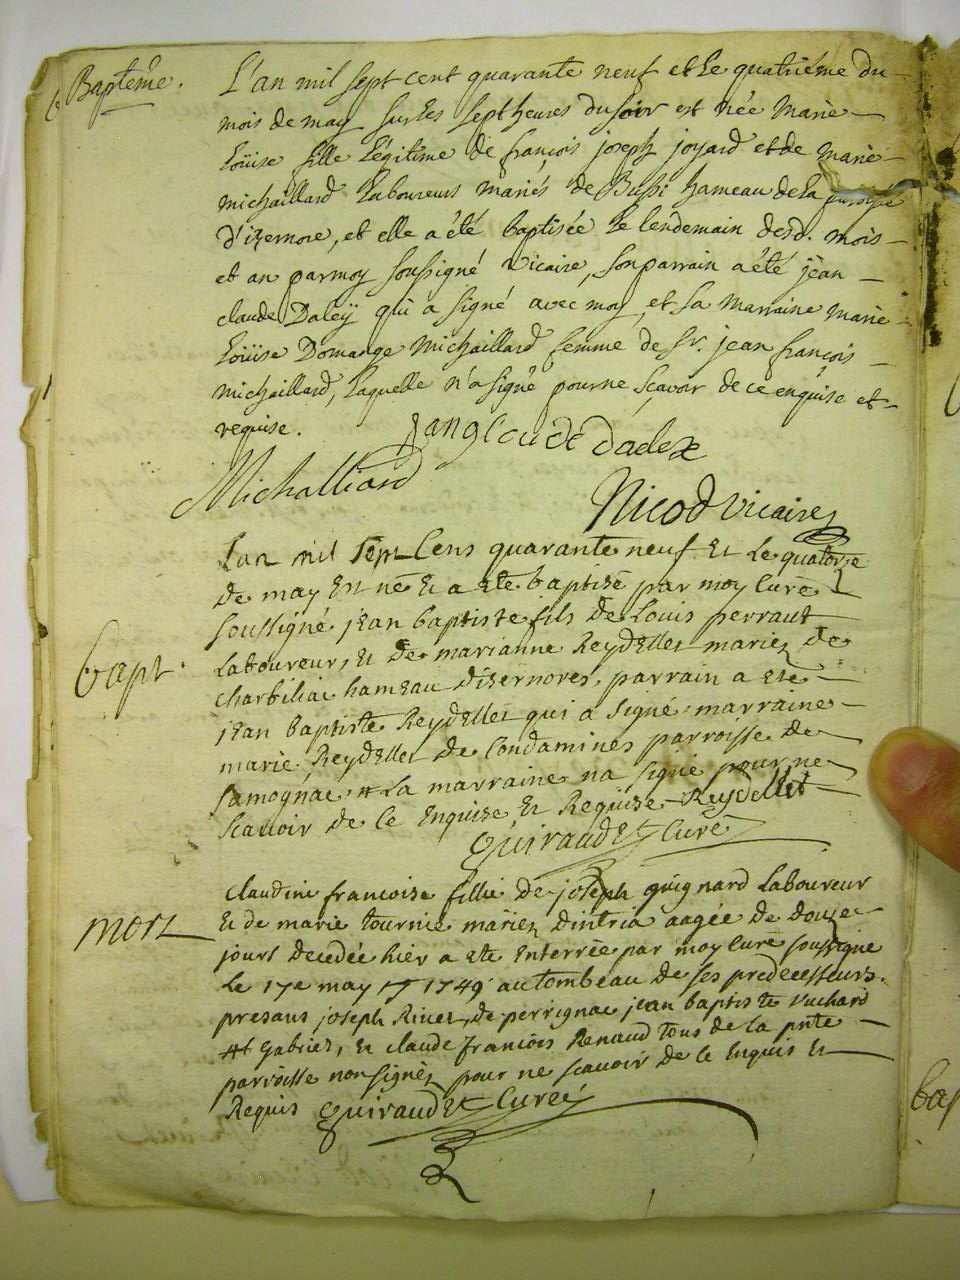 Baptême.
L'an mil sept cent quarante neuf et le quatriéme du
mois de may sur les sept heures du soir est née marie
Loüise fille Légitime de françois joseph joyard et de marie
michaillard Laboureurs mariés de Bussi hameau de la
d'izernore, et elle a été baptisée le lendemain desd. mois
et an par moy soussigné vicaire, son parrain a été jèan
claude Daleÿ qui a signé avec moy, et sa marraine marie
Loüise Domange Michaillard femme de sr. jean françois
michaillard, laquelle n'a signé pour ne sçavoir de ce enquise et
requise. Jangloude dadex
Michalliard
Nicod vicaire
Lan mil sept Cens quarante neuf Et Le quatorze
de may Est né Et a Ete baptisé par moy Curé
soussigné jean baptiste fils de Louis perraut
Bapt.
Laboureur, Et de marianne Reydellet mariez de
Charbiliac hameau dizernores, parrain a Ete
jean baptiste Reydellet qui a signé, marraine
marie Reydellet de Condamines parroisse de
samognac, # La marraine na signé pour ne
scavoir de Ce Enquise Et Requise Reydellet
Guiraudet Curé
Claudine francoise fillie de joseph guignard Laboureur
mort
Et de marie tournie mariez dintria aagée de douze
jours decedée hier a Ete Enterrée par moy Curé soussigné
Le 17e may 1749 au tombeau de ses predecesseurs.
presans joseph Rivez, de perrignac jean baptiste vuchard
# Gabriez, Et claude francois Renaud tous de la pnte
parroisse non signéz pour ne scavoir de Ce Enquis Et
Requis Guiraudet Curé